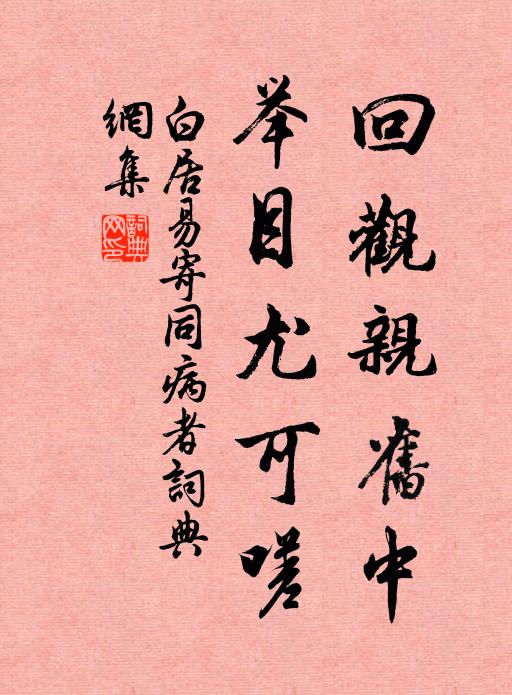 回觀親舊中
举目尤可嗟
白居易寄同病者詞典
網集
詞典网印